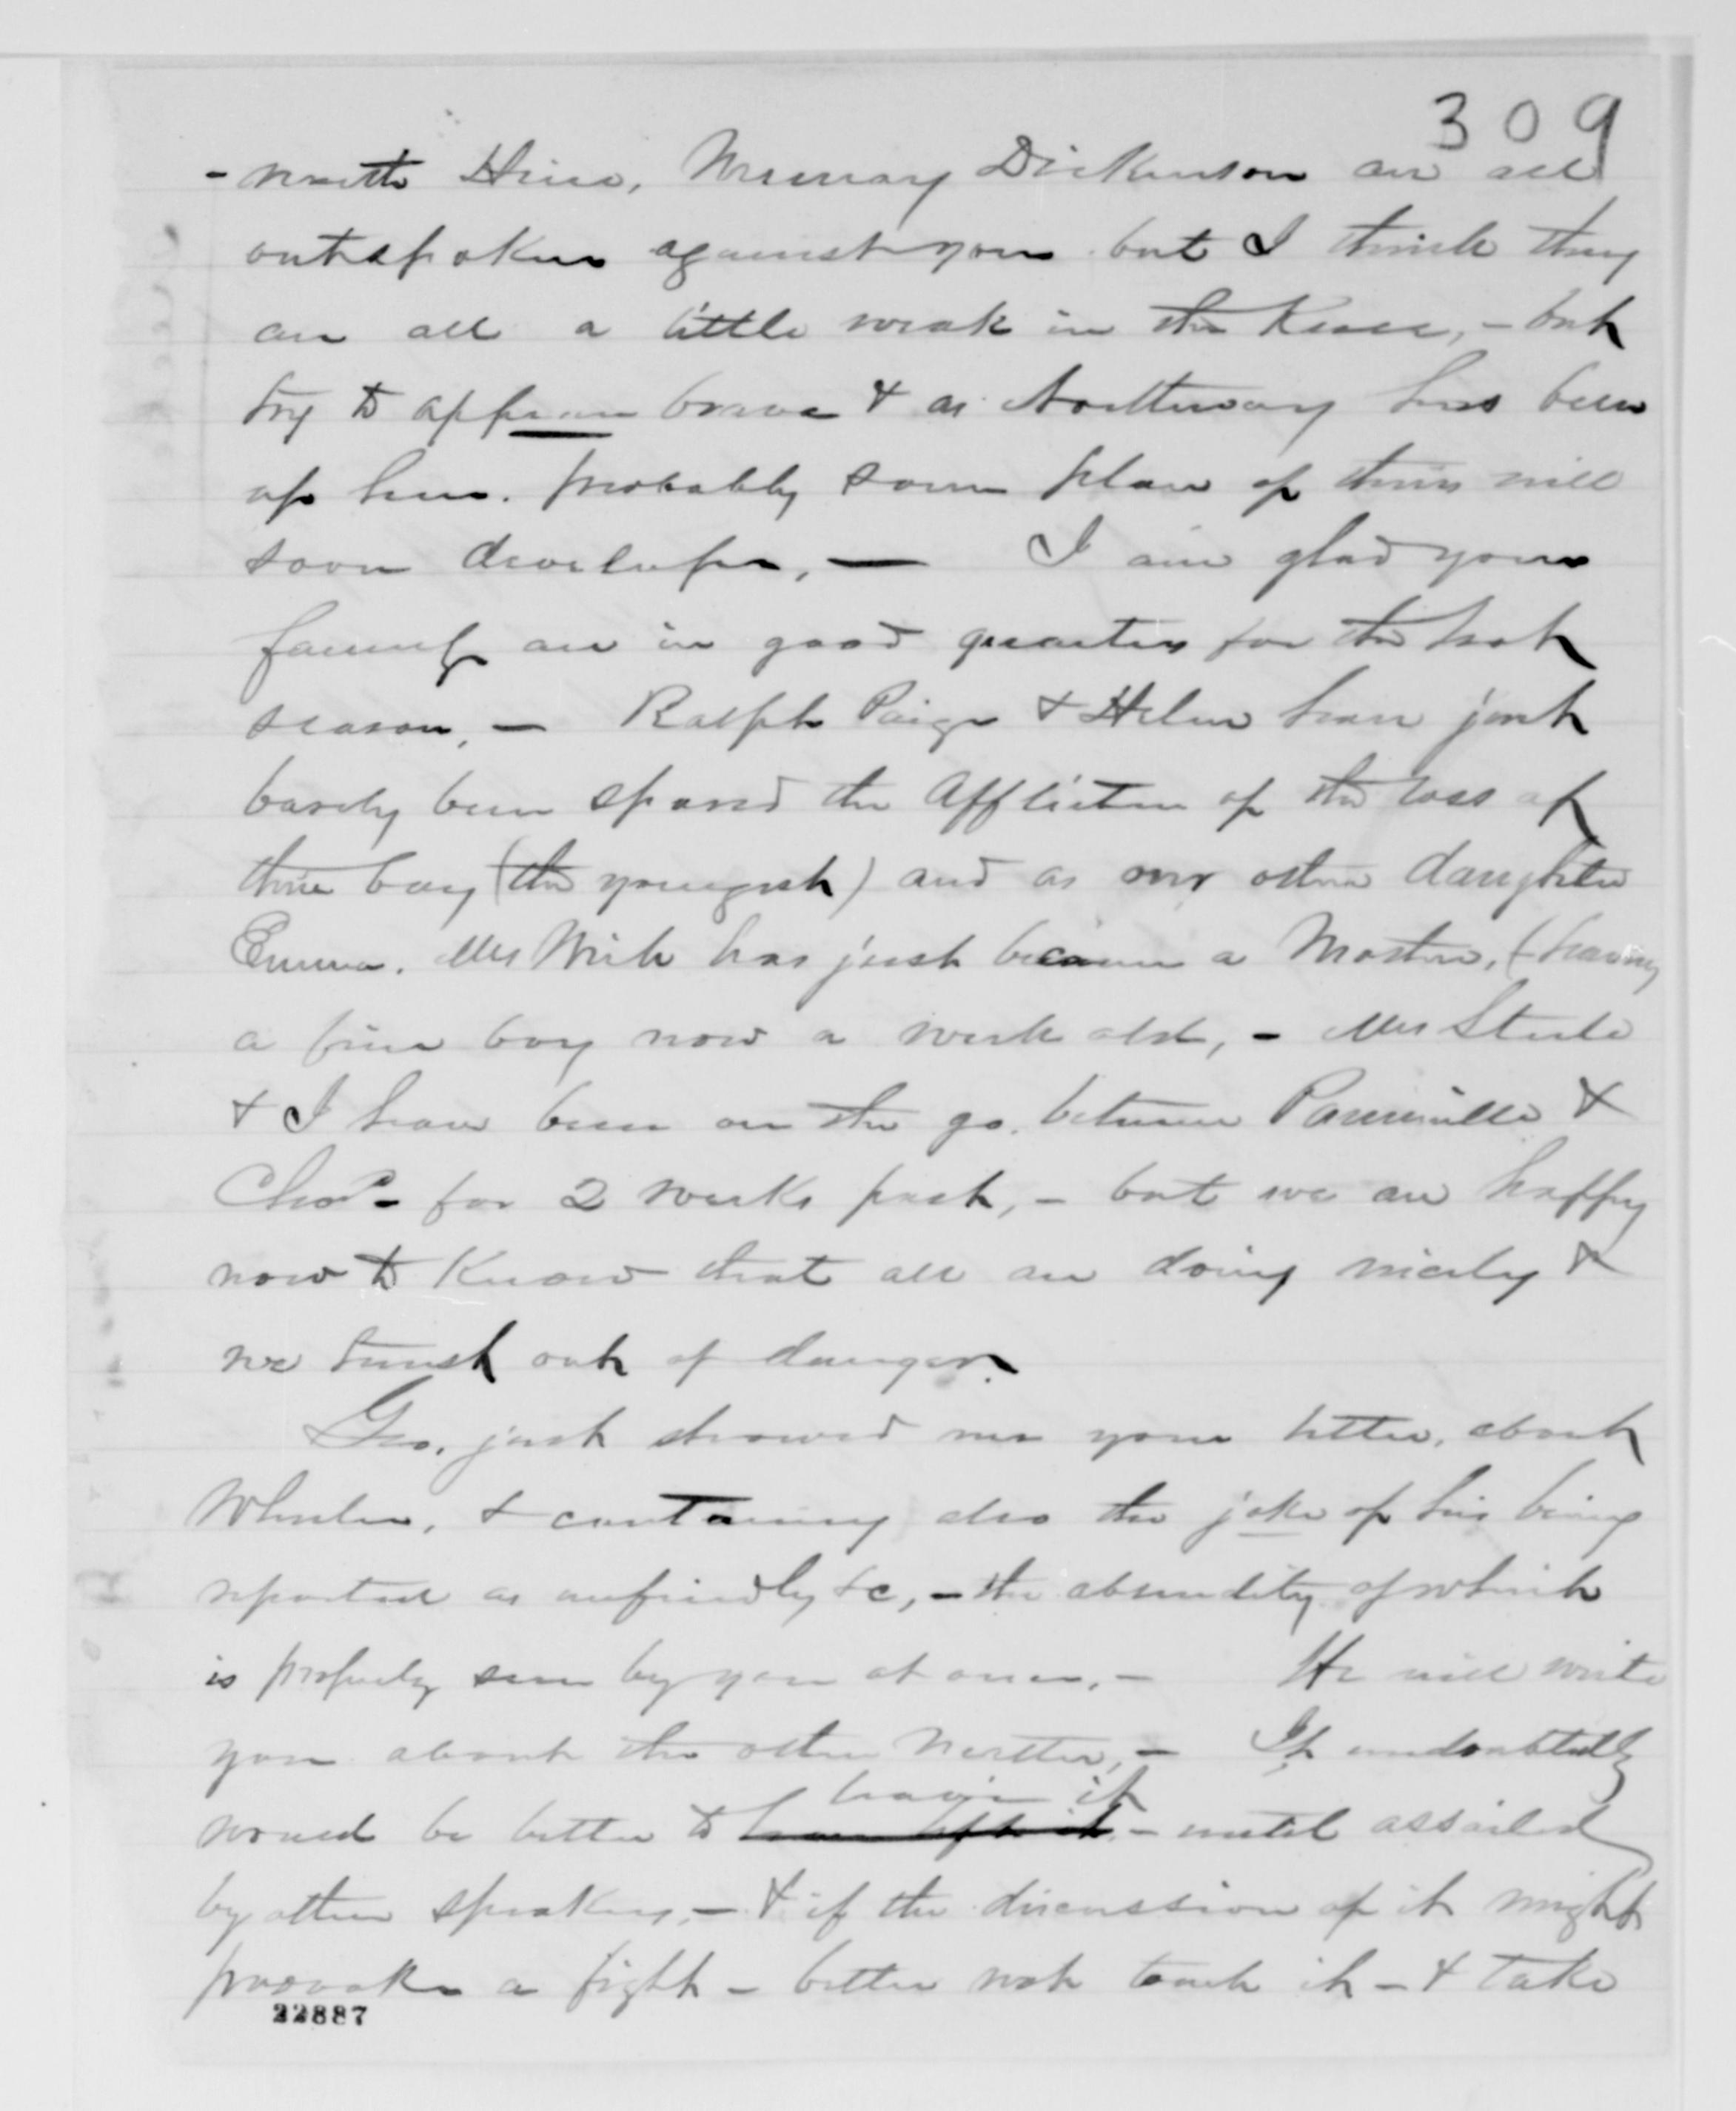 309
- Hine, Murray Dickinson are all
outspoken against you but I think they
are all a little weak in the Knees, - but
try to appear brave & as Northway has been
up here. probably some plan of theirs will
soon develope, — I am glad your
family are in good quarters for the hot
season, — Ralph Paige & Helen have just
barely been spared the affliction of the loss of
their boy (the youngest) and as our other daughter
Emma. Mrs Wick has just became a Mother, (having
a fine boy now a week old, - Mrs Steele
& I have been on the go. between Painesville &
for 2 weeks past, - but we are happy
now to Know that all are doing nicely &
we trust out of danger.
Geo. just showed me your letter, about
Wheeler, & containing also the joke of his being
reported as unfriendly &c, - the absurdity of which
is properly seen by you at once, - He will write
you about the other matter, - It undoubtedly
leave it
would be better to have left it - until assailed
by other speakers, - & if the discussion of it might
provoke a fight - better not touch it - & take
22887